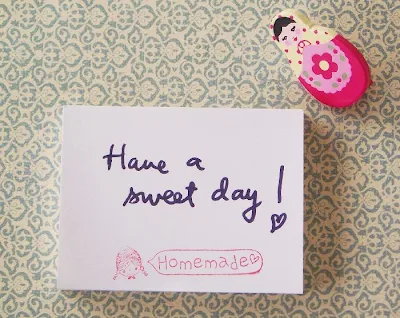 Have a
sweet day!
Homemade